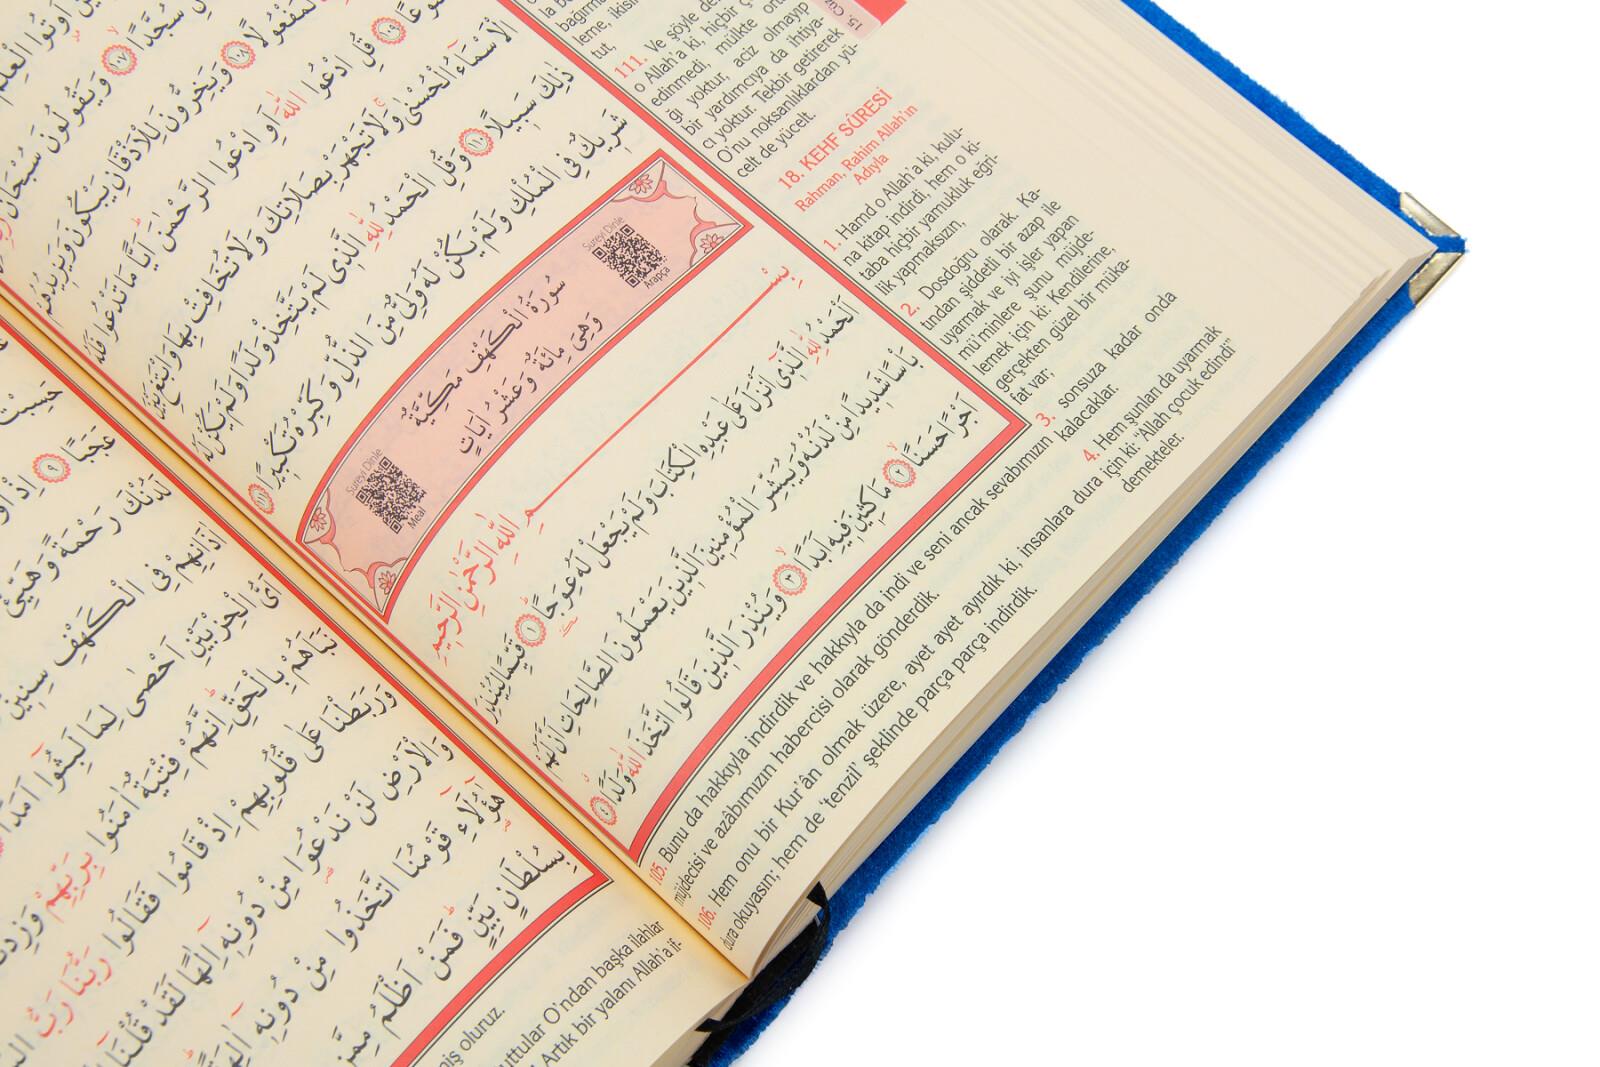 سُجَّدًا ﴿١٠٧﴾ وَيَقُولُونَ سُبْحَانَ
لَمَفْعُولًا ﴿١٠٨﴾ وَيَخِرُّونَ لِلْاَذْقَانِ يَبْكُونَ وَيَزِيدُهُمْ
﴿١٠٩﴾ قُلِ ادْعُوا اللّٰهَ اَوِ ادْعُوا الرَّحْمٰنَ اَيًّا مَا تَدْعُوا فَلَهُ
الْاَسْمَاءُ الْحُسْنٰى وَلَا تَجْهَرْ بِصَلَاتِكَ وَلَا تُخَافِتْ بِهَا وَابْتَغِ بَيْنَ
ذٰلِكَ سَبِيلًا ﴿١١٠﴾ وَقُلِ الْحَمْدُ لِلّٰهِ الَّذِى لَمْ يَتَّخِذْ وَلَدًا وَلَمْ يَكُنْ لَهُ
شَرِيكٌ فِى الْمُلْكِ وَلَمْ يَكُنْ لَهُ وَلِىٌّ مِنَ الذُّلِّ وَكَبِّرْهُ تَكْبِيرًا ﴿١١١﴾
Sureyi Dinle
Arapça
سُورَةُ الْكَهْفِ مَكِّيَّةٌ
وَهِىَ مِائَةٌ وَعَشْرُ اٰيَاتٍ
Sureyi Dinle
Meal
بِسْمِ اللّٰهِ الرَّحْمٰنِ الرَّحِيمِ
اَلْحَمْدُ لِلّٰهِ الَّذِى اَنْزَلَ عَلٰى عَبْدِهِ الْكِتَابَ وَلَمْ يَجْعَلْ لَهُ عِوَجًا ﴿١﴾ قَيِّمًا لِيُنْذِرَ
بَاْسًا شَدِيدًا مِنْ لَدُنْهُ وَيُبَشِّرَ الْمُؤْمِنِينَ الَّذِينَ يَعْمَلُونَ الصَّالِحَاتِ اَنَّ لَهُمْ
اَجْرًا حَسَنًا ﴿٢﴾ مَاكِثِينَ فِيهِ اَبَدًا ﴿٣﴾ وَيُنْذِرَ الَّذِينَ قَالُوا اتَّخَذَ اللّٰهُ وَلَدًا ﴿٤﴾
tut,
111. Ve şöyle de
o Allah'a ki, hiçbir
edinmedi, mülkte
ğı yoktur, aciz olmayıp
bir yardımcıya da ihtiya-
cı yoktur. Tekbir getirerek
O'nu noksanlıklardan yü-
celt de yücelt.
18. KEHF SÛRESİ
Rahman, Rahim Allah'ın
Adıyla
1. Hamd o Allah'a ki, kulu-
na kitap indirdi, hem o ki-
taba hiçbir yamukluk eğri-
lik yapmaksızın,
2. Dosdoğru olarak. Ka-
tından şiddetli bir azap ile
uyarmak ve iyi işler yapan
mü'minlere şunu müjde-
lemek için ki: Kendilerine,
gerçekten güzel bir müka-
fat var;
3. sonsuza kadar onda
kalacaklar.
4. Hem şunları da uyarmak
için ki: "Allah çocuk edindi"
demekteler.
105. Bunu da hakkıyla indirdik ve hakkıyla da indi ve seni ancak sevabımızın
müjdecisi ve azâbımızın habercisi olarak gönderdik.
106. Hem onu bir Kur'ân olmak üzere, ayet ayet ayırdık ki, insanlara dura
dura okuyasın; hem de 'tenzil' şeklinde parça parça indirdik.
عَجَبًا ﴿٩﴾ اِذْ
لَدُنْكَ رَحْمَةً وَهَيِّئْ
اٰذَانِهِمْ فِى الْكَهْفِ سِنِينَ
اَىُّ الْحِزْبَيْنِ اَحْصٰى لِمَا لَبِثُوا اَمَدًا
نَبَاَهُمْ بِالْحَقِّ اِنَّهُمْ فِتْيَةٌ اٰمَنُوا بِرَبِّهِمْ
وَرَبَطْنَا عَلٰى قُلُوبِهِمْ اِذْ قَامُوا فَقَالُوا رَبُّنَا رَبُّ
وَالْاَرْضِ لَنْ نَدْعُوَا مِنْ دُونِهِ اِلٰهًا لَقَدْ قُلْنَا
هٰؤُلَاءِ قَوْمُنَا اتَّخَذُوا مِنْ دُونِهِ اٰلِهَةً
بِسُلْطَانٍ بَيِّنٍ فَمَنْ اَظْلَمُ مِمَّنِ
oluruz.
O'ndan başka ilahlar
Artık bir yalanı Allah'a if-